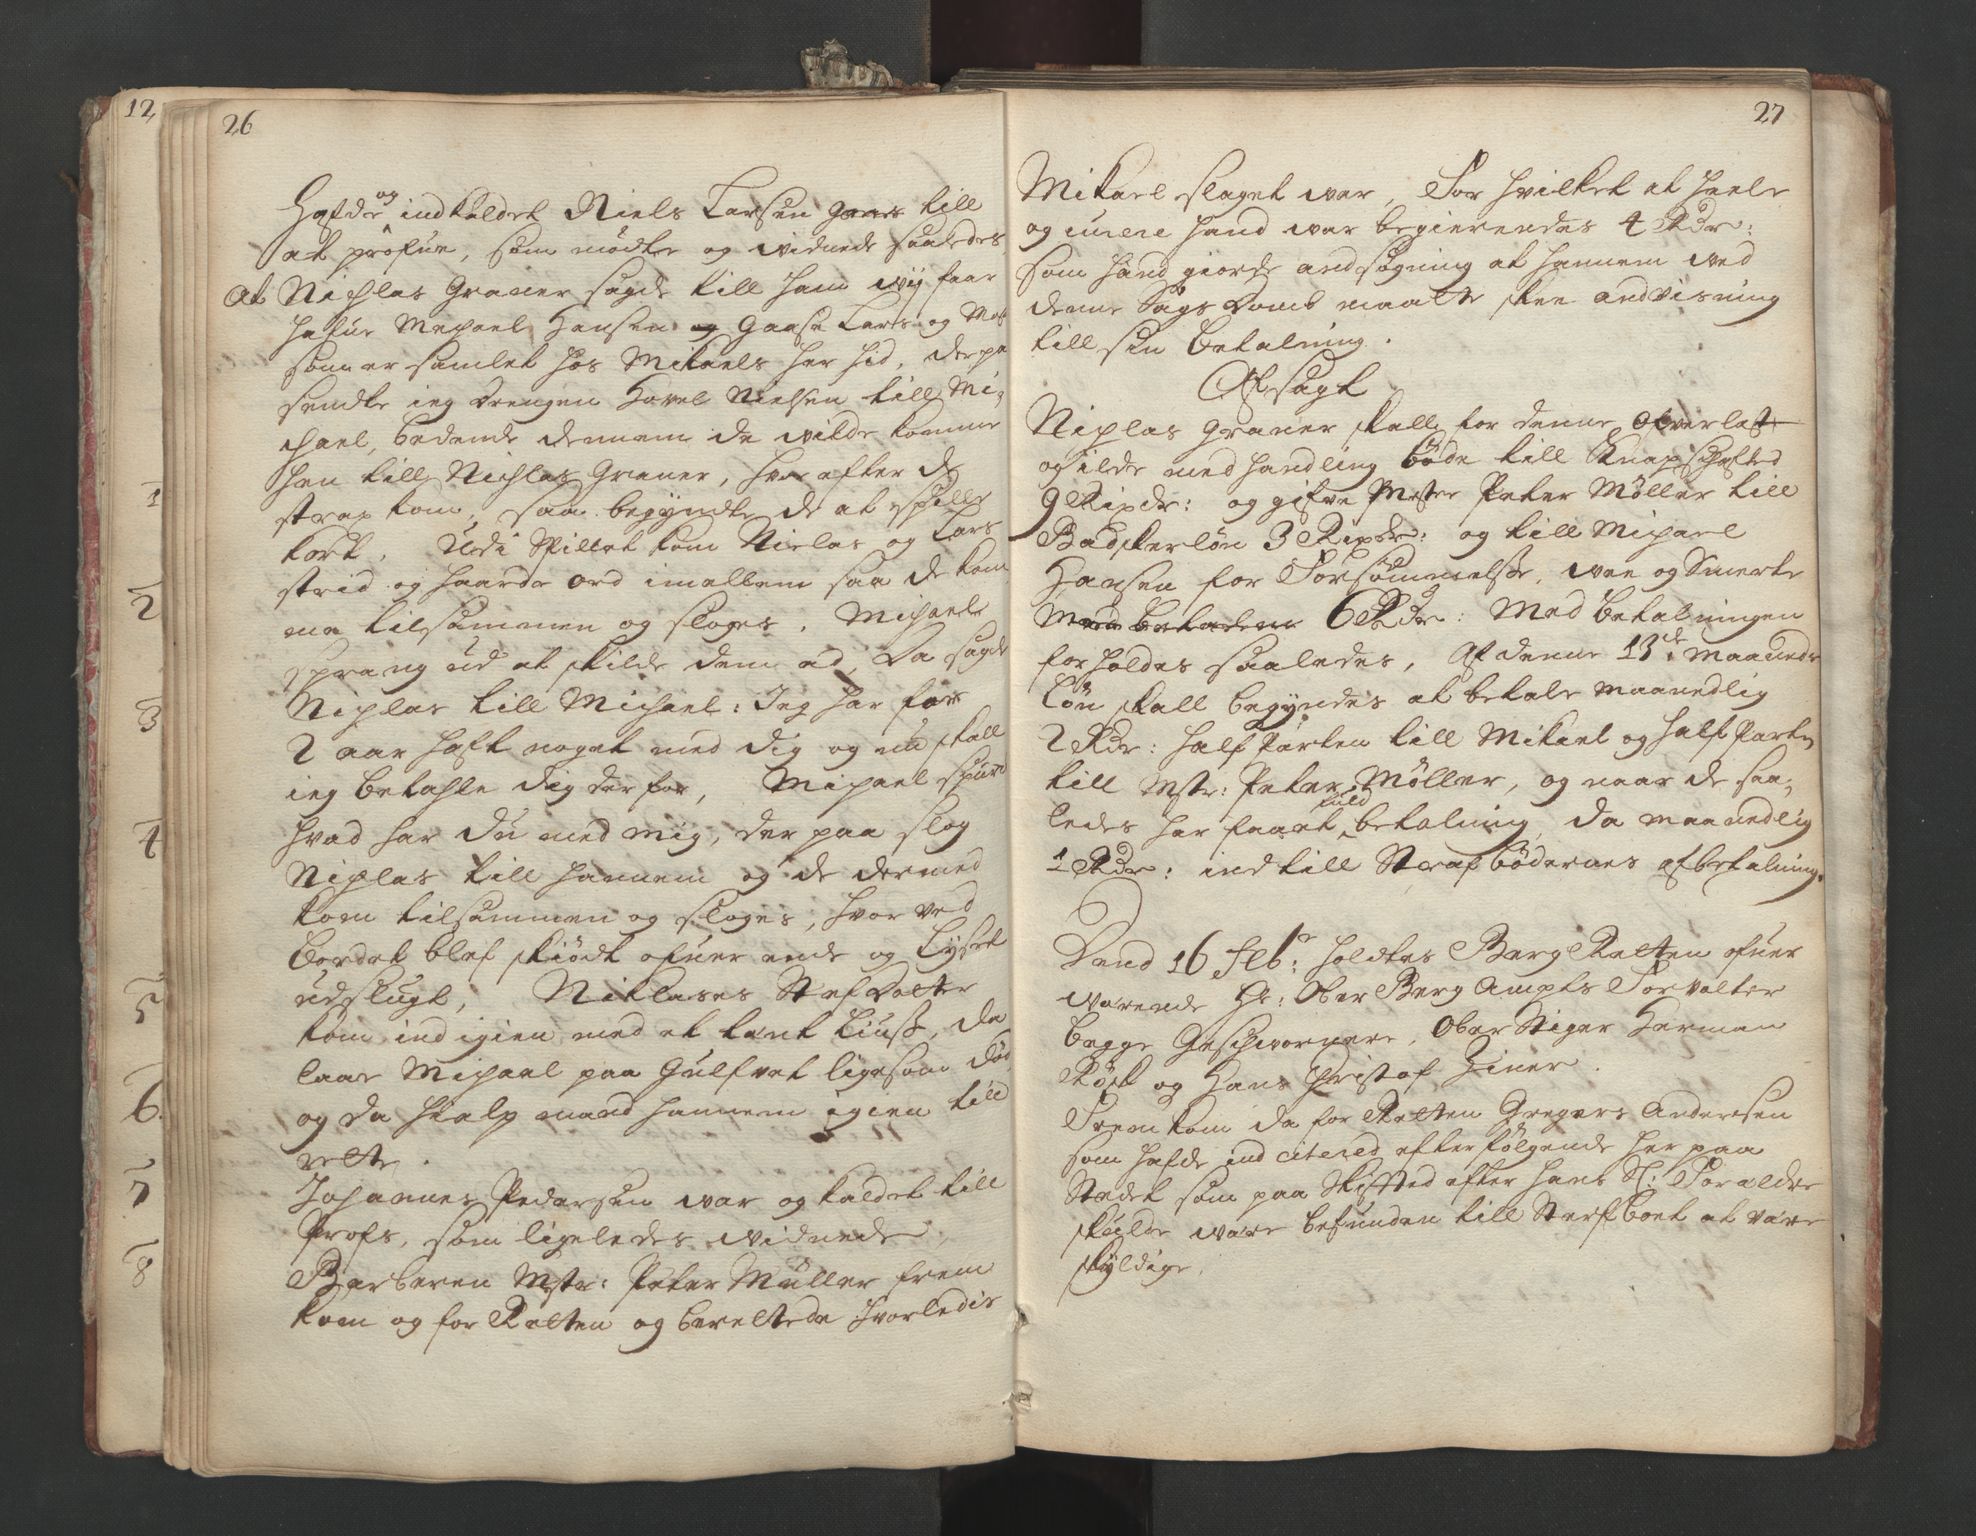 12
1
2
3
4
5
6.
7
8
26
Hafde og indkaldet Niels Larsen till
at profue, som mødte og vidnede saaledes
At Nichlas Graner sagde till ham wij faar
hafue Mechael Hansen og Gaase Lars og
som er samlet hos Mikaels her hid, derpa
sendte ieg drengen Hovel Nielsen till Mi¬
chael, bedende dennem de vilde komme
hen till Nichlas Graner, hvor efter de
strax kom, saa begyndte de at spille
kort. Udi Spillet kom Niclas og Lars
strid og haarde ord imellem saa de kom
me tilsammen og sloges. Michaels
sprang ud at skilde dem ad, Da sagde
Nichlas till Michael: Jeg har for
2 aar haft noget med dig og nu skall
ieg betahle dig derfor, Michael spurde
hvad har du med mig, der paa slog
Nichlas till hannem og de dermed
kom tilsammen og sloges, hvor ved
bordet blef skiødt ofuer ende og Lyset
udslugt, Niklases Stefdotter
kom ind igien med et tent Liuss, da
laae Michael paa Gulfvet ligesom død
og da hialp mand hannem igien till
rette.
Johannes Pedersen war og kaldet till
Profs, som ligeledes widnede,
Barberen Mstr: Peter Müller frem
kom og for Retten og berettede hvorledis
27
Mikael slaget war, For hvilket at heele
og curere hand war begierendes 4 Rdr:
som hand giorde andsøgning at hannem ved
denne Sags Domb maatte skee andvisning
till sin betalning.
Afsagt
Nichlas Graner skall for denne Ofverlast
og ilde medhandling bøde till Knapschafted
9 Rixdr: og gifve Mester Peter Møller till
Badskerløn 3 Rixdr: og till Michael
Hansen for Forsømmelse, wee og Smerte
6 Rdr: Med betalningen
forholdes saaledes, Af denne 13de Maaneds
Løn skall begyndes at betale maanedlig
2 Rdr: half Parten till Mikael og half Parten
till Mstr: Peter Møller, og naar de saa¬
ledes har faaet fuld betalning, da maanedlig
1 Rdr: ind till Strafbødernes afbetalning.
Dend 16 Febr: holdtes Berg Retten ofuer
warende Hr: Ober Berg Ampts Forvalter
begge Geschwornere, Ober Stiger Herman
Røst og Hans Christof Ziner.
Fremkom da for Retten Gregers Andersen
som hafde ind citered efterfølgende her paa
Stedet som paa Skiftted efter hans Sl: Foraldre
skulde være befunden till Sterfboet at være
skyldige.